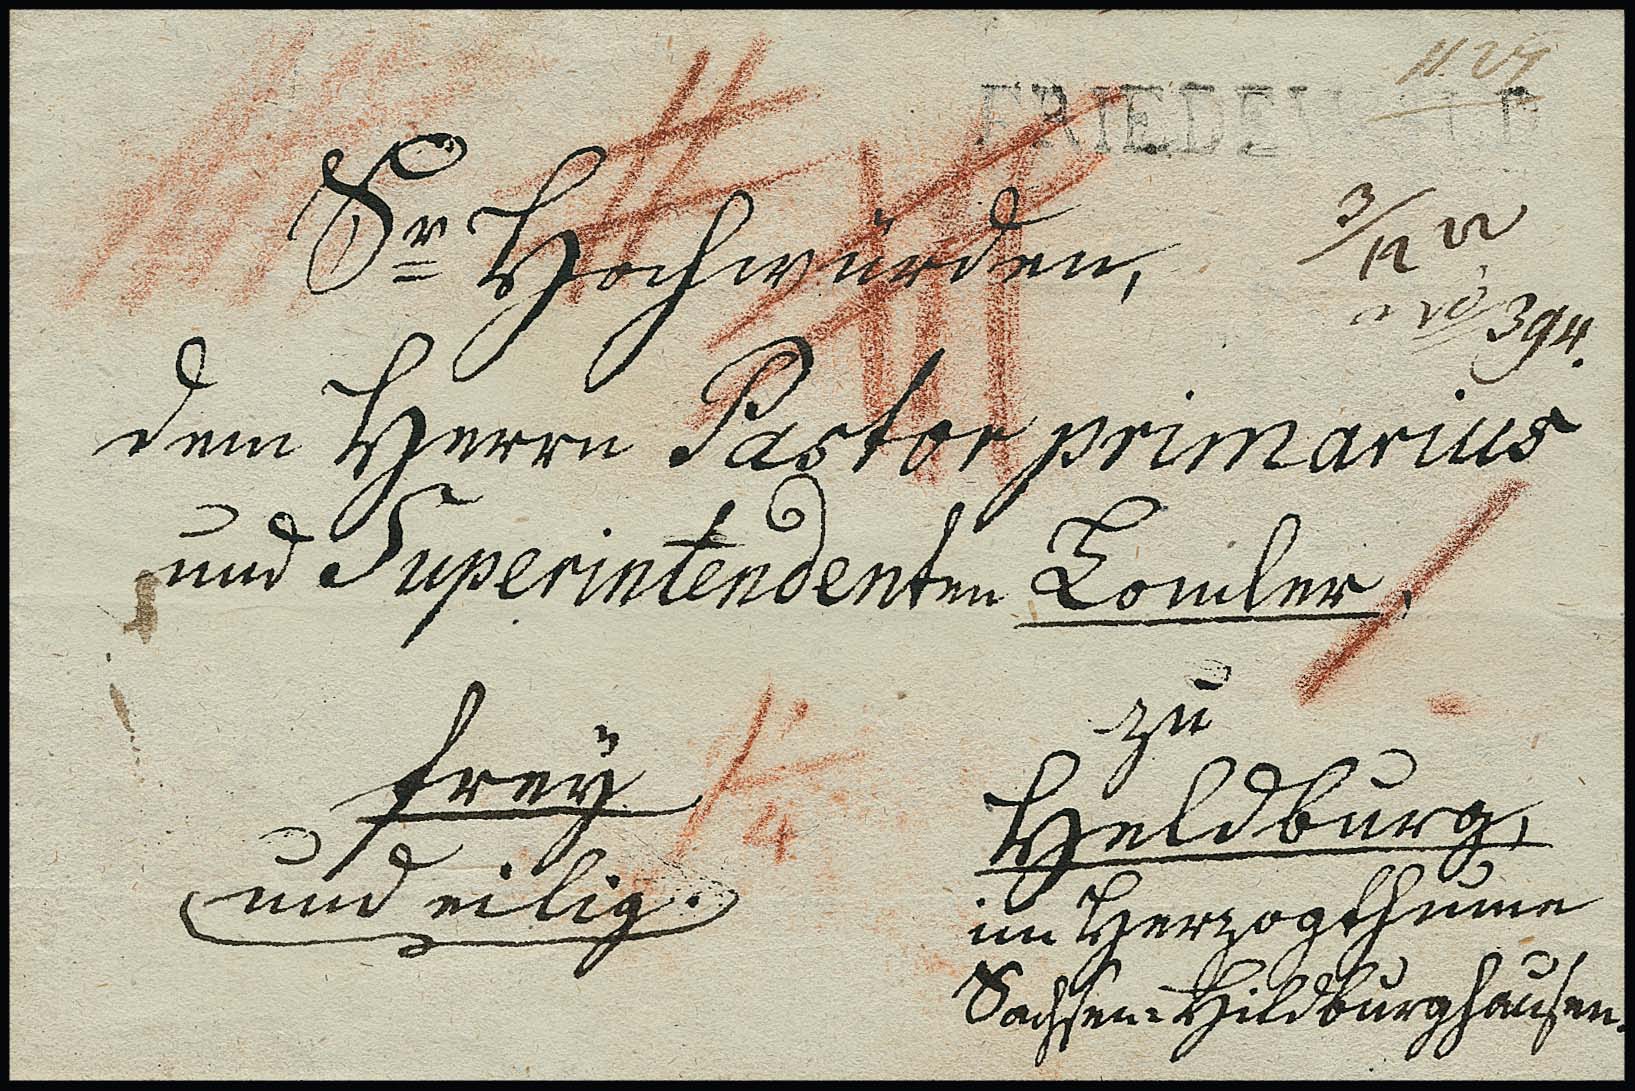 FRIEDEWALD
Sr Hochwürden,
3/12 22
3 gr.
dem Herrn Pastor primarius
und Superintendenten Lomler,
frey
und eilig.
1/4
zu
Heldburg,
im Herzogthume
Sachsen-Hildburghausen.